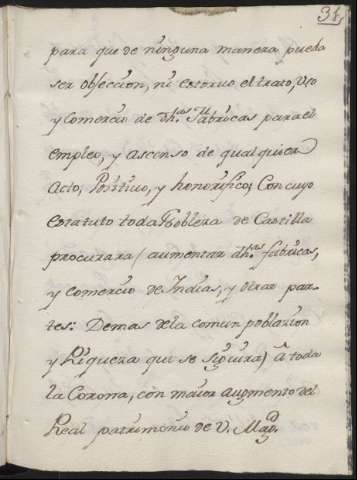 34
para que de ninguna manera pueda
ser objecion, ni estorvo el trato, Uso
y Comercio de dh.ᵃˢ fabricas para el
empleo, y ascenso de qualquier
acto, Positivo, y honorifico; Con cuyo
estatuto toda Nobleza de Castilla
procurara (aumentar dh.ᵃˢ fabricas,
y comercio de Indias, y otras par-
tes: Demas de la comun poblazion
y Riqueza que se seguira) â toda
la Corona, con maior augmento del
Real patrimonio de V. Mag.ᵈ